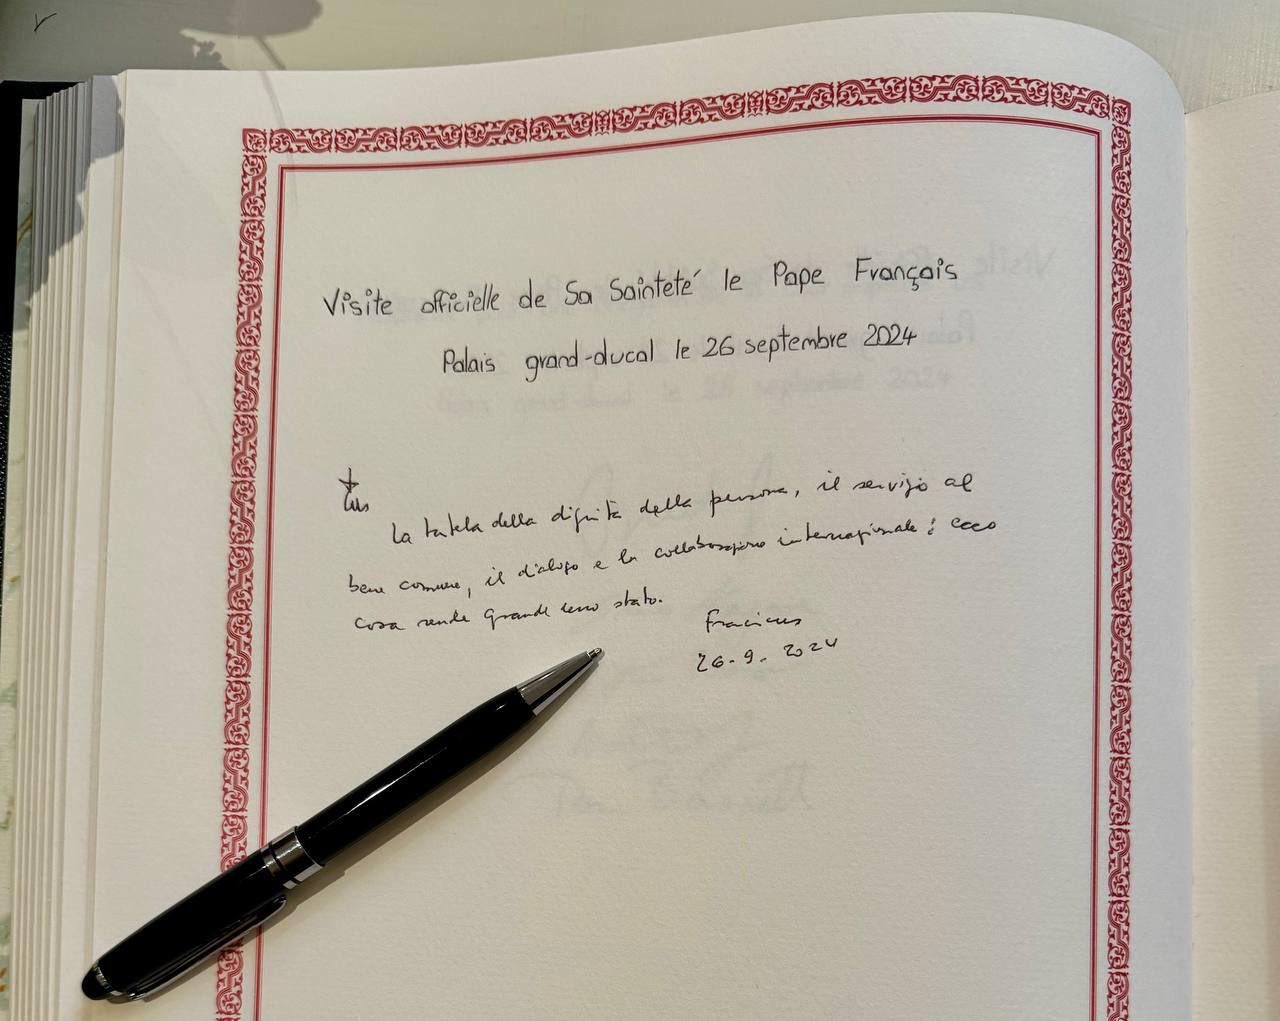 Visite officielle de Sa Sainteté le Pape François
Palais grand-ducal le 26 septembre 2024
La tutela della dignità della persona, il servizio al
bene comune, il dialogo e la collaborazione internazionale: ecco
cosa rende grande uno stato.
Franciscus
26.9.2024